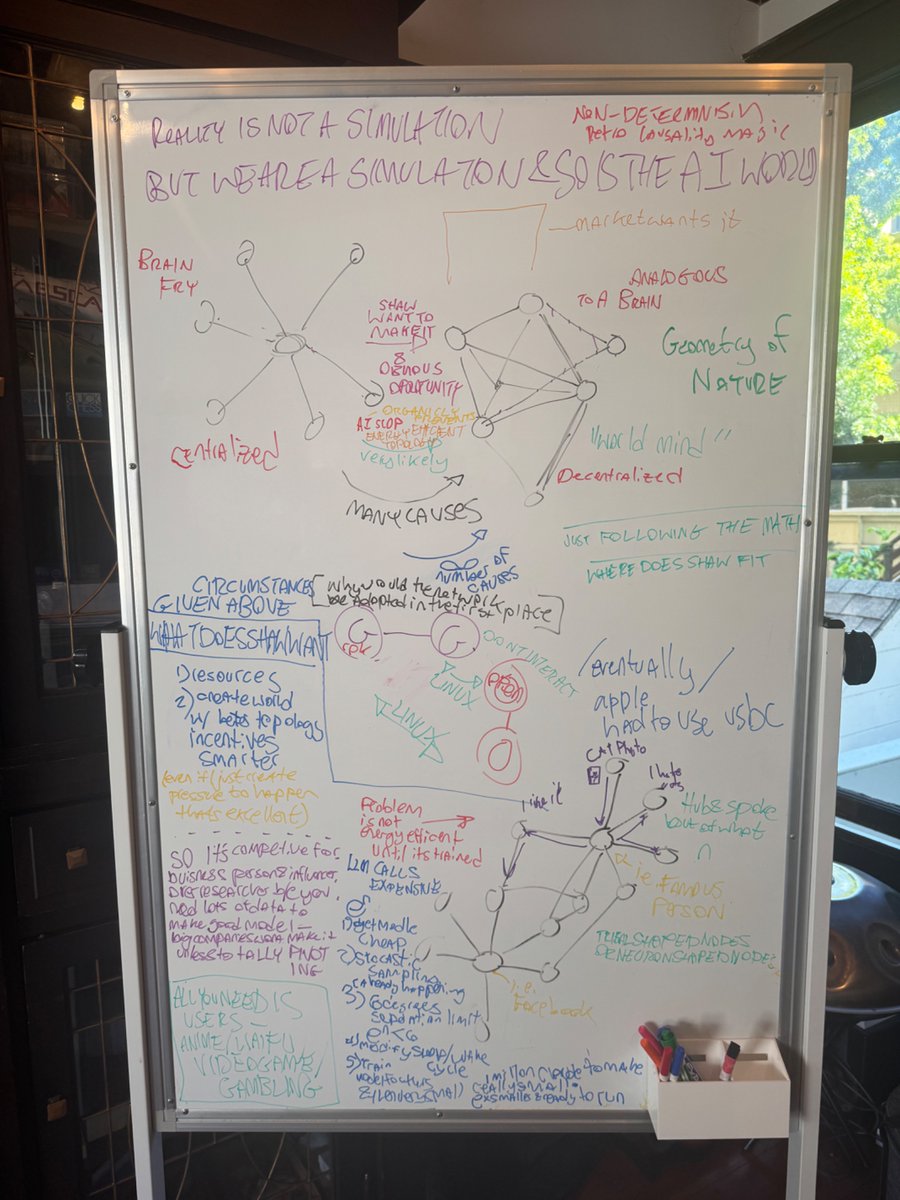 REALITY IS NOT A SIMULATION
NON-DETERMINISM.
RETRO CAUSALITY MAGIC
BUT WE ARE A SIMULATION & SO IS THE AI WORLD
MARKET WANTS IT
BRAIN
FRY
ANALOGOUS
TO A BRAIN
SHAW
WANT TO
MAKE IT
&
OBVIOUS
OPORTUNITY
AI SLOP
ORGANICLY PREVENTS
ENERGY EFFICIENT
TOPOLOGY
very likely
Geometry of
NATURE
"World mind"
CENTRALIZED
Decentralized
MANY CAUSES
NUMBER OF
CAUSES
JUST FOLLOWING THE MATH
WHERE DOES SHAW FIT
CIRCUMSTANCES
GIVEN ABOVE
why would the network
be adopted in the first place
WHAT DOES SHAW WANT
G
G
DONT INTERACT
LINUX
LINUX
O
1) resources
2) create world
w/ topology
incentives
smarter
(even if I just create
pressure to happen
thats excellent)
/eventually/
apple
had to use usbc
CAT PHOTO
I hate
cats
I like it
Hubs spoke
but of what
n
i.e. FAMOUS
PERSON
Problem
is not
energy efficient
until its trained
LLM CALLS
EXPENSIVE
SO ITS COMPETIVE FOR
business person & influencer,
but researcher b/c you
need lots of data to
make good model —
big companies wont make it
unless TOTALLY PIVOT
ING
1) get
cheap
2) STOCASTIC
SAMPLING
already happening
3) 6 degrees
separation limit
on < 6
4) modify SLEEP/WAKE
cycle
5) train
i.e.
Facebook
TRIBAL SHAPED NODES
OR NEURON SHAPED NODES
ALL YOU NEED IS
USERS —
ANIME/WAIFU
VIDEOGAME/
GAMBLING
1 million to make
really small
ready to run